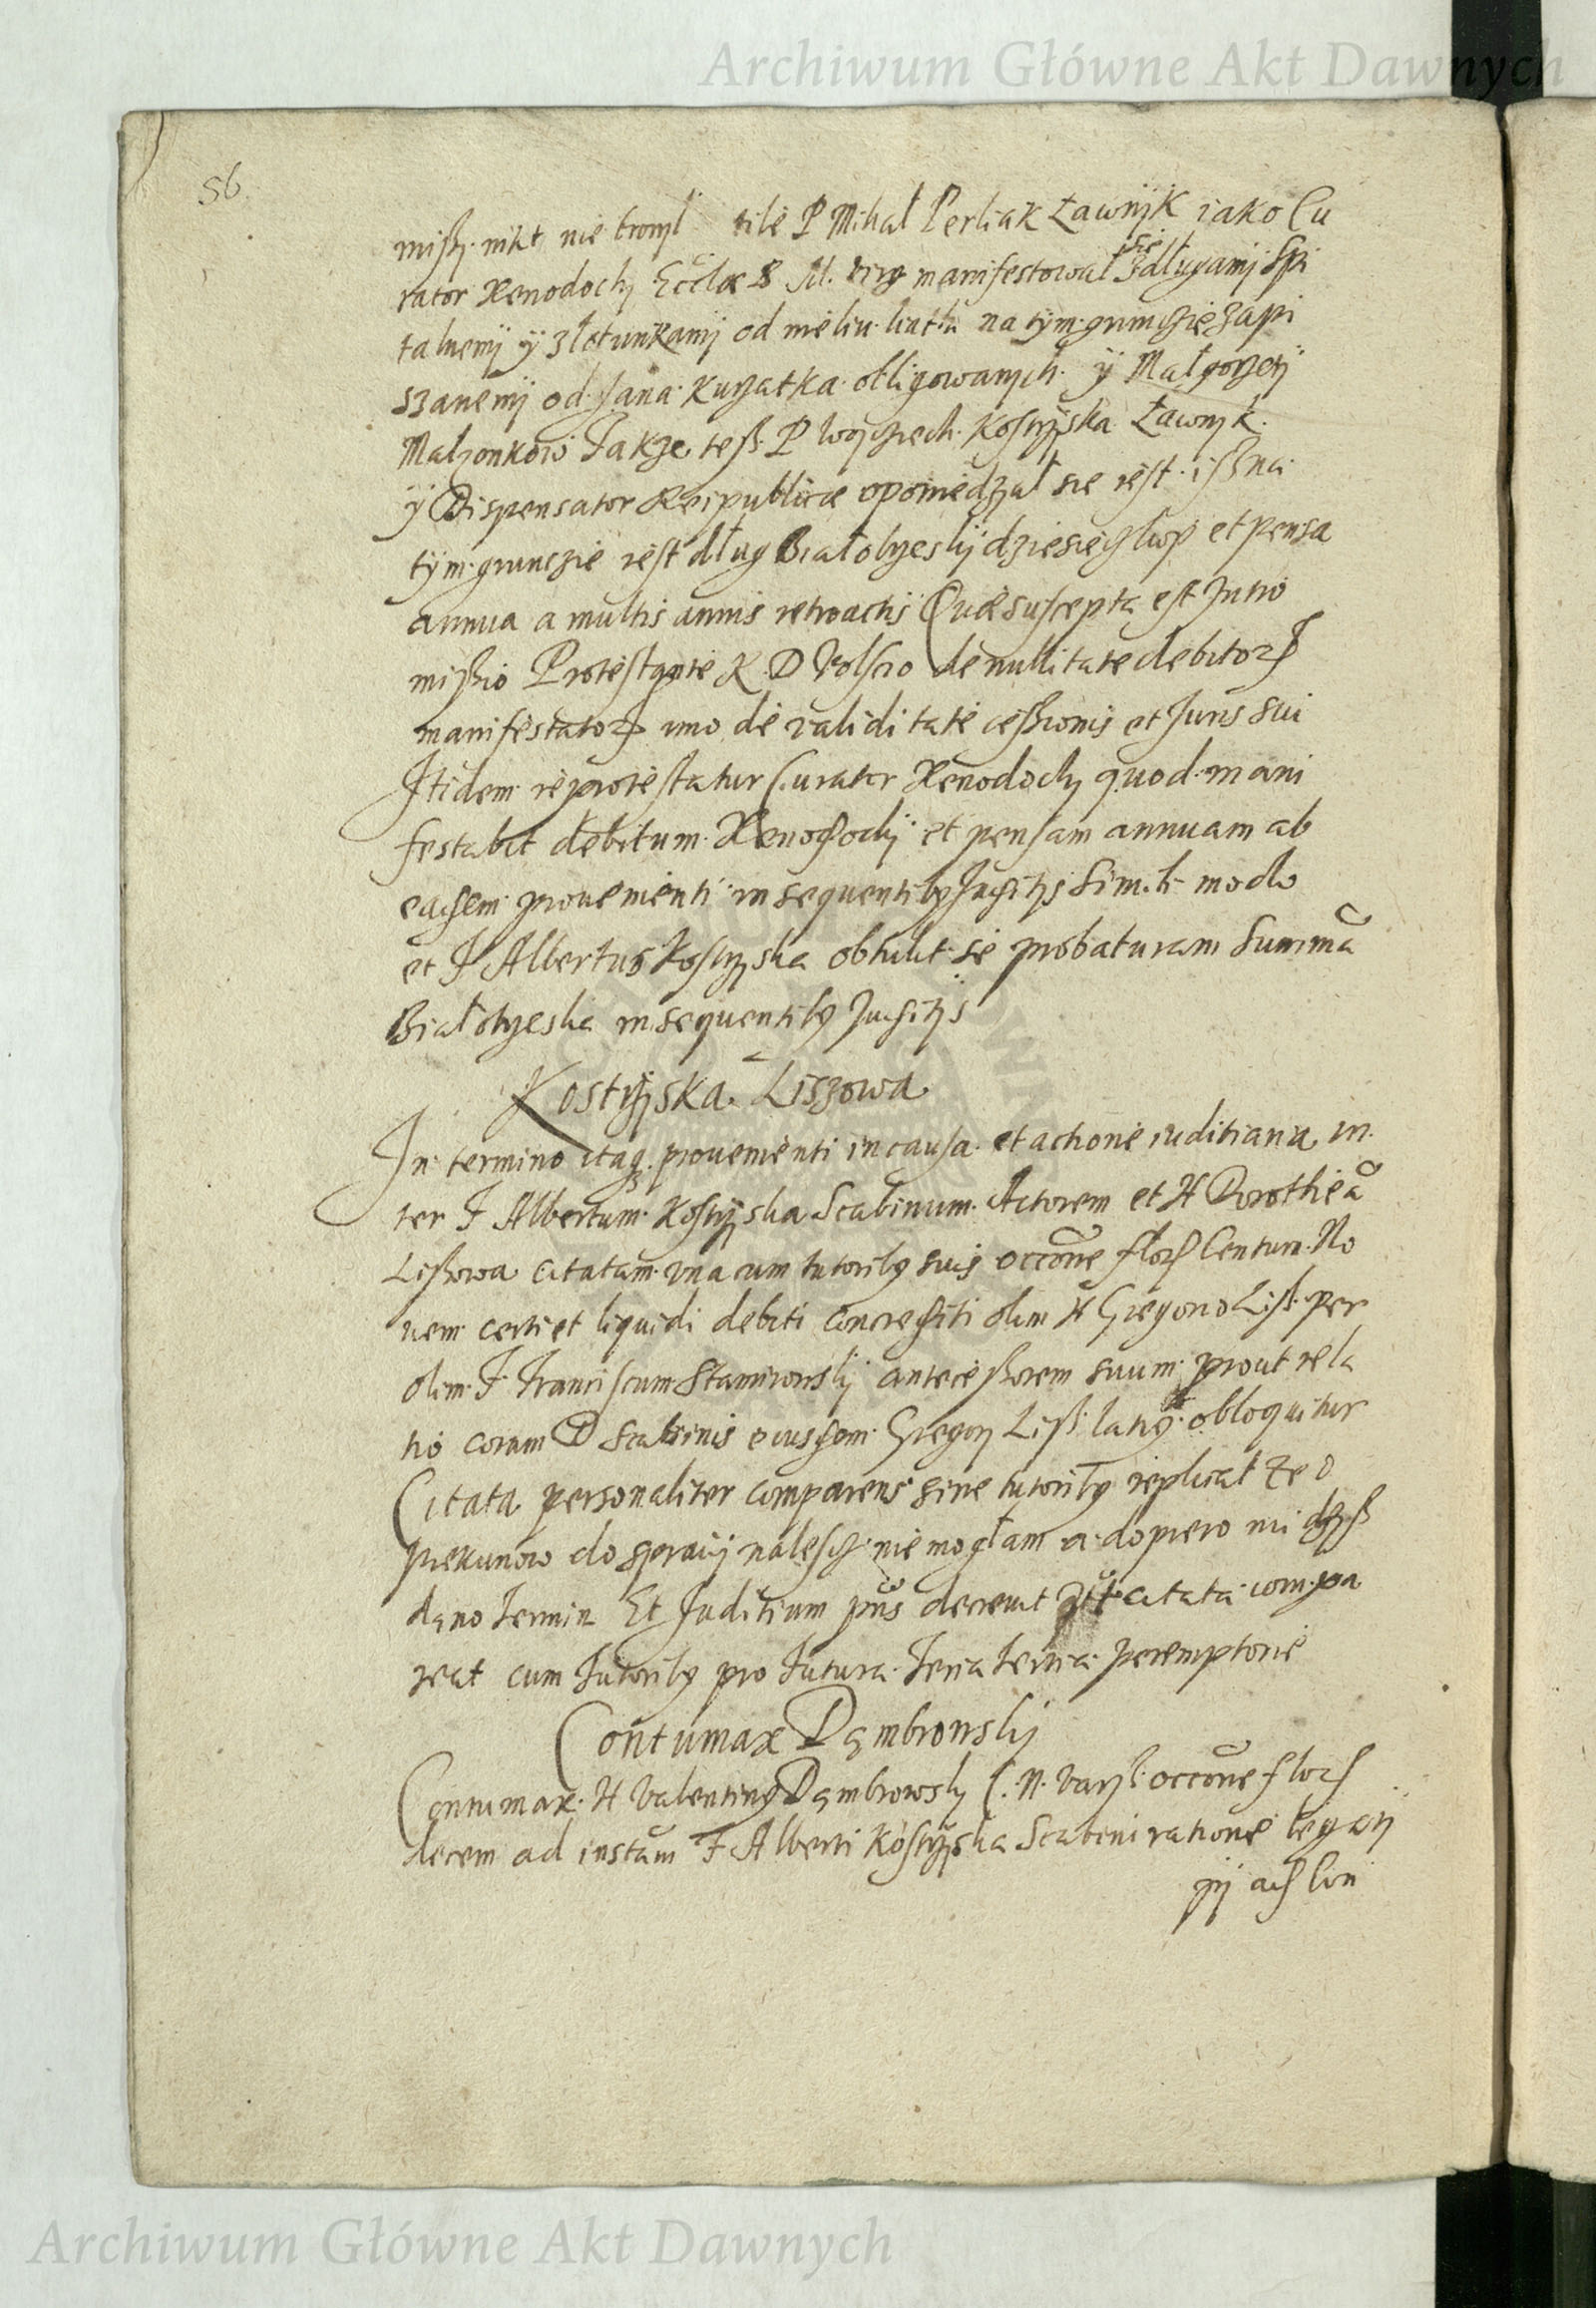 Archiwum Główne Akt Dawnych
56
misßÿ nikt nie bronÿl tile P Mihał Perliak Ławnÿk jako Cu
rator Xenodochÿ Eccłae S M. Virg manifestował się z długamÿ Spi
talnemÿ ÿ z łotunkamÿ od na tÿm grunczie zapi
szanemÿ od Jana Kurzatka obligowanych ÿ Małgorzetÿ
Małzonkow Takze tesß P Woÿciech Kostrzÿska Ławnÿk
ÿ Dispensator Reipublicæ opowiedzał sie iest isß na
tÿm grunczie iest dług Białobrzeskÿ dziesięcz kop et pensa
annua a multis annis retroactis Quæ suscepta est Intro
missio Protestante R D Volscio de nullitate debitorꝝ
manifestatorꝝ imo de validitate cessionis et Juris sui
Itidem reprotestatur Curator Xenodochÿ quod mani
festabit debitum Xenodochÿ et pensam annuam ab
eadem provenienti in sequentibꝰ Juditÿs Simili modo
et F Albertus Kostrzÿska obtulit se probaturam Summā
Białobrzeska in sequentibꝰ Juditÿs
Kostrzÿska Liszowa
In termino itaqꝫ provenienti in causa et actione iuditiaria in
ter F Albertum Kostrzÿska Scabinum Actorem et H Dorotheā
Lisßowa citatam una cum tutoribꝰ suis occōne florꝝ Centum No
uem certi et liquidi debiti concrediti olim H Gregorio Lisß per
olim F Franciscum Stamirowskÿ antecessorem suum prout rela
tio coram D Scabinis eiusdem Gregorÿ Lisß latiꝰ obloquitur
Citata personaliter comparens sine tutoribꝰ replicat Ze o
piekunow do sprawÿ nalescz nie mogłam a dopiero mi dzÿß
dano Termin Et Juditium pn̄s decrevit citata compa
reat cum Tutoribꝰ pro futura Feria Tertia peremptorie
Contumax Dąmbrowskÿ
Contumax H Valentinꝰ Dąmbrowskÿ C. N. Varß occōne florꝝ
decem ad instām F Alberti Kostrzÿska Scabini ratione legatÿ
pÿ ad Con
Archiwum Główne Akt Dawnych